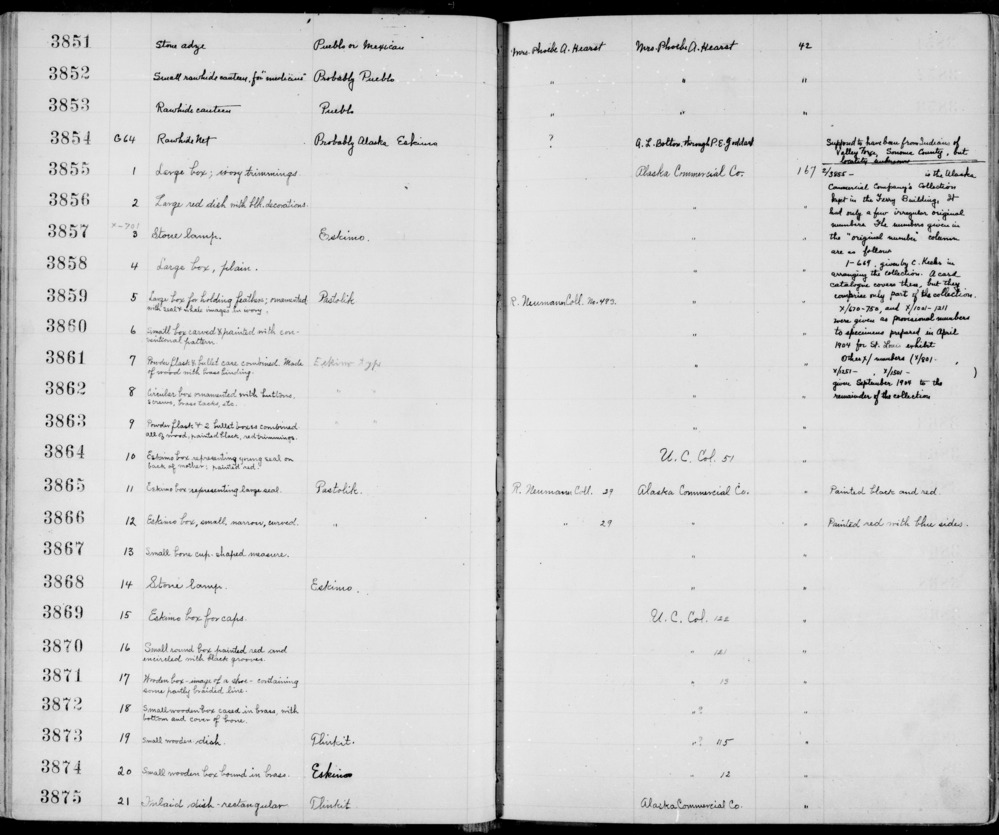 3851 Stone adze Pueblo or Mexican Mrs. Phoebe A. Hearst Mrs. Phoebe A. Hearst 42
3852 Small rawhide canteen, for "medicine" Probably Pueblo " " "
3853 Rawhide canteen Pueblo " " "
3854 G64 Rawhide net Probably Alaska Eskimo ? A. L. Bolton, through P. E. Goddard Supposed to have been from Indians of
Valley Ford, Sonoma County, but
locality unknown
3855 1 Large box; ivory trimmings. Alaska Commercial Co. 167 2/3855 - is the Alaska
Commercial Company's Collection
kept in the Ferry Building. It
had only a few irregular original
numbers. The numbers given in
the "original number" column
are as follows
1-669, given by C. Keeler in
arranging the collection. A card
catalogue covers these, but they
comprise only part of the collection.
X/670-750, and X/1001-1211
were given as provisional numbers
to specimens prepared in April
1904 for St. Louis exhibit
Other X/ numbers (X/801-
X/1251- , X/1501- )
given September 1904 to the
remainder of the collection
3856 2 Large red dish with blk. decorations. " "
3857 X-701
3 Stone lamp. Eskimo. " "
3858 4 Large box, plain. " "
3859 5 Large box for holding feathers; ornamented
with seal & whale images in ivory. Pastolik R. Neumann Coll. No. 483. " "
3860 6 Small box carved & painted with con-
ventional pattern. " "
3861 7 Powder flask & bullet case combined. Made
of wood with brass binding. Eskimo type " "
3862 8 Circular box ornamented with buttons,
screws, brass tacks, etc. " " " "
3863 9 Powder flask & 2 bullet boxes combined
all of wood, painted black, red trimmings. " " " "
3864 10 Eskimo box representing young seal on
back of mother; painted red. U. C. Col. 51 "
3865 11 Eskimo box representing large seal. Pastolik. R. Neumann Coll. 29 Alaska Commercial Co. " Painted black and red.
3866 12 Eskimo box, small, narrow, curved. " " 29 " " Painted red with blue sides.
3867 13 Small bone cup-shaped measure. " "
3868 14 Stone lamp. Eskimo. " "
3869 15 Eskimo box for caps. U. C. Col. 122 "
3870 16 Small round box painted red and
encircled with black grooves. " 121 "
3871 17 Wooden box - image of a shoe - containing
some partly braided line. " 13 "
3872 18 Small wooden box cased in brass, with
bottom and cover of bone. "? "
3873 19 Small wooden dish. Thlinkit. "? 115 "
3874 20 Small wooden box bound in brass. Eskimo " 12 "
3875 21 Inlaid dish - rectangular Thlinkit. Alaska Commercial Co. "